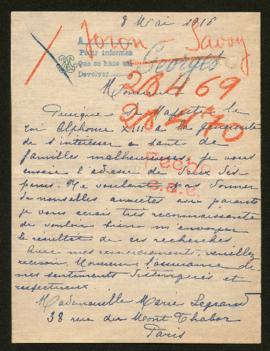 8 Mai 1916
Joron - Savoy
Para informes
Que se hace
Devolver
Georges
28469
Monsieur
28470
Puisque sa Majesté le
roi Alphonse XIII a la
s'intéresser à tant de
familles malheureuses, je vous
envoie l'adresse de deux dis-
parus. Ne voulant pas donner
de nouvelles aux parents
je vous serais très reconnaissante
de vouloir bien m'envoyer
le résultat de ces recherches
Avec mes remerciements, veuillez
recevoir Monsieur l'assurance de
mes sentiments distingués et
respectueux
Mademoiselle Marie Legrand
38 rue du Mont Thabor
Paris